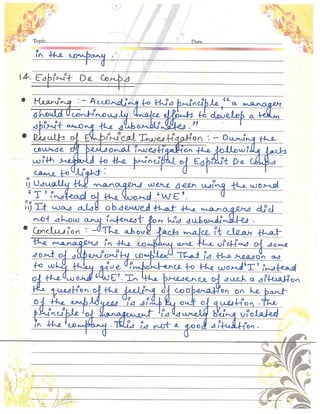 Topic Date
in the company.
14. Espirit De Corps
• Meaning :- According to this principle, "a manager
should continously make efforts to develop a team
spirit among the subordinates."
• Results of Empirical Investigation :- During the
course of personal investigation the following facts
with regard to the principal of Espirit De Corps
came to light:
i) Usually the managers were seen using the word
'I' instead of the word 'WE'.
ii) It was also observed that the managers did
not show any interest for his subordinates.
• Conclusion :- The above facts make it clear that
the managers in the company are the victims of some
sort of superiority complex. That is the reason as
to why they give importance to the word 'I' instead
of the word 'WE'. In the presence of such a situation
the question of the feeling of cooperation on he part
of the employees is simply out of question. The
principle of management is surely being violated
in the company. This is not a good situation.